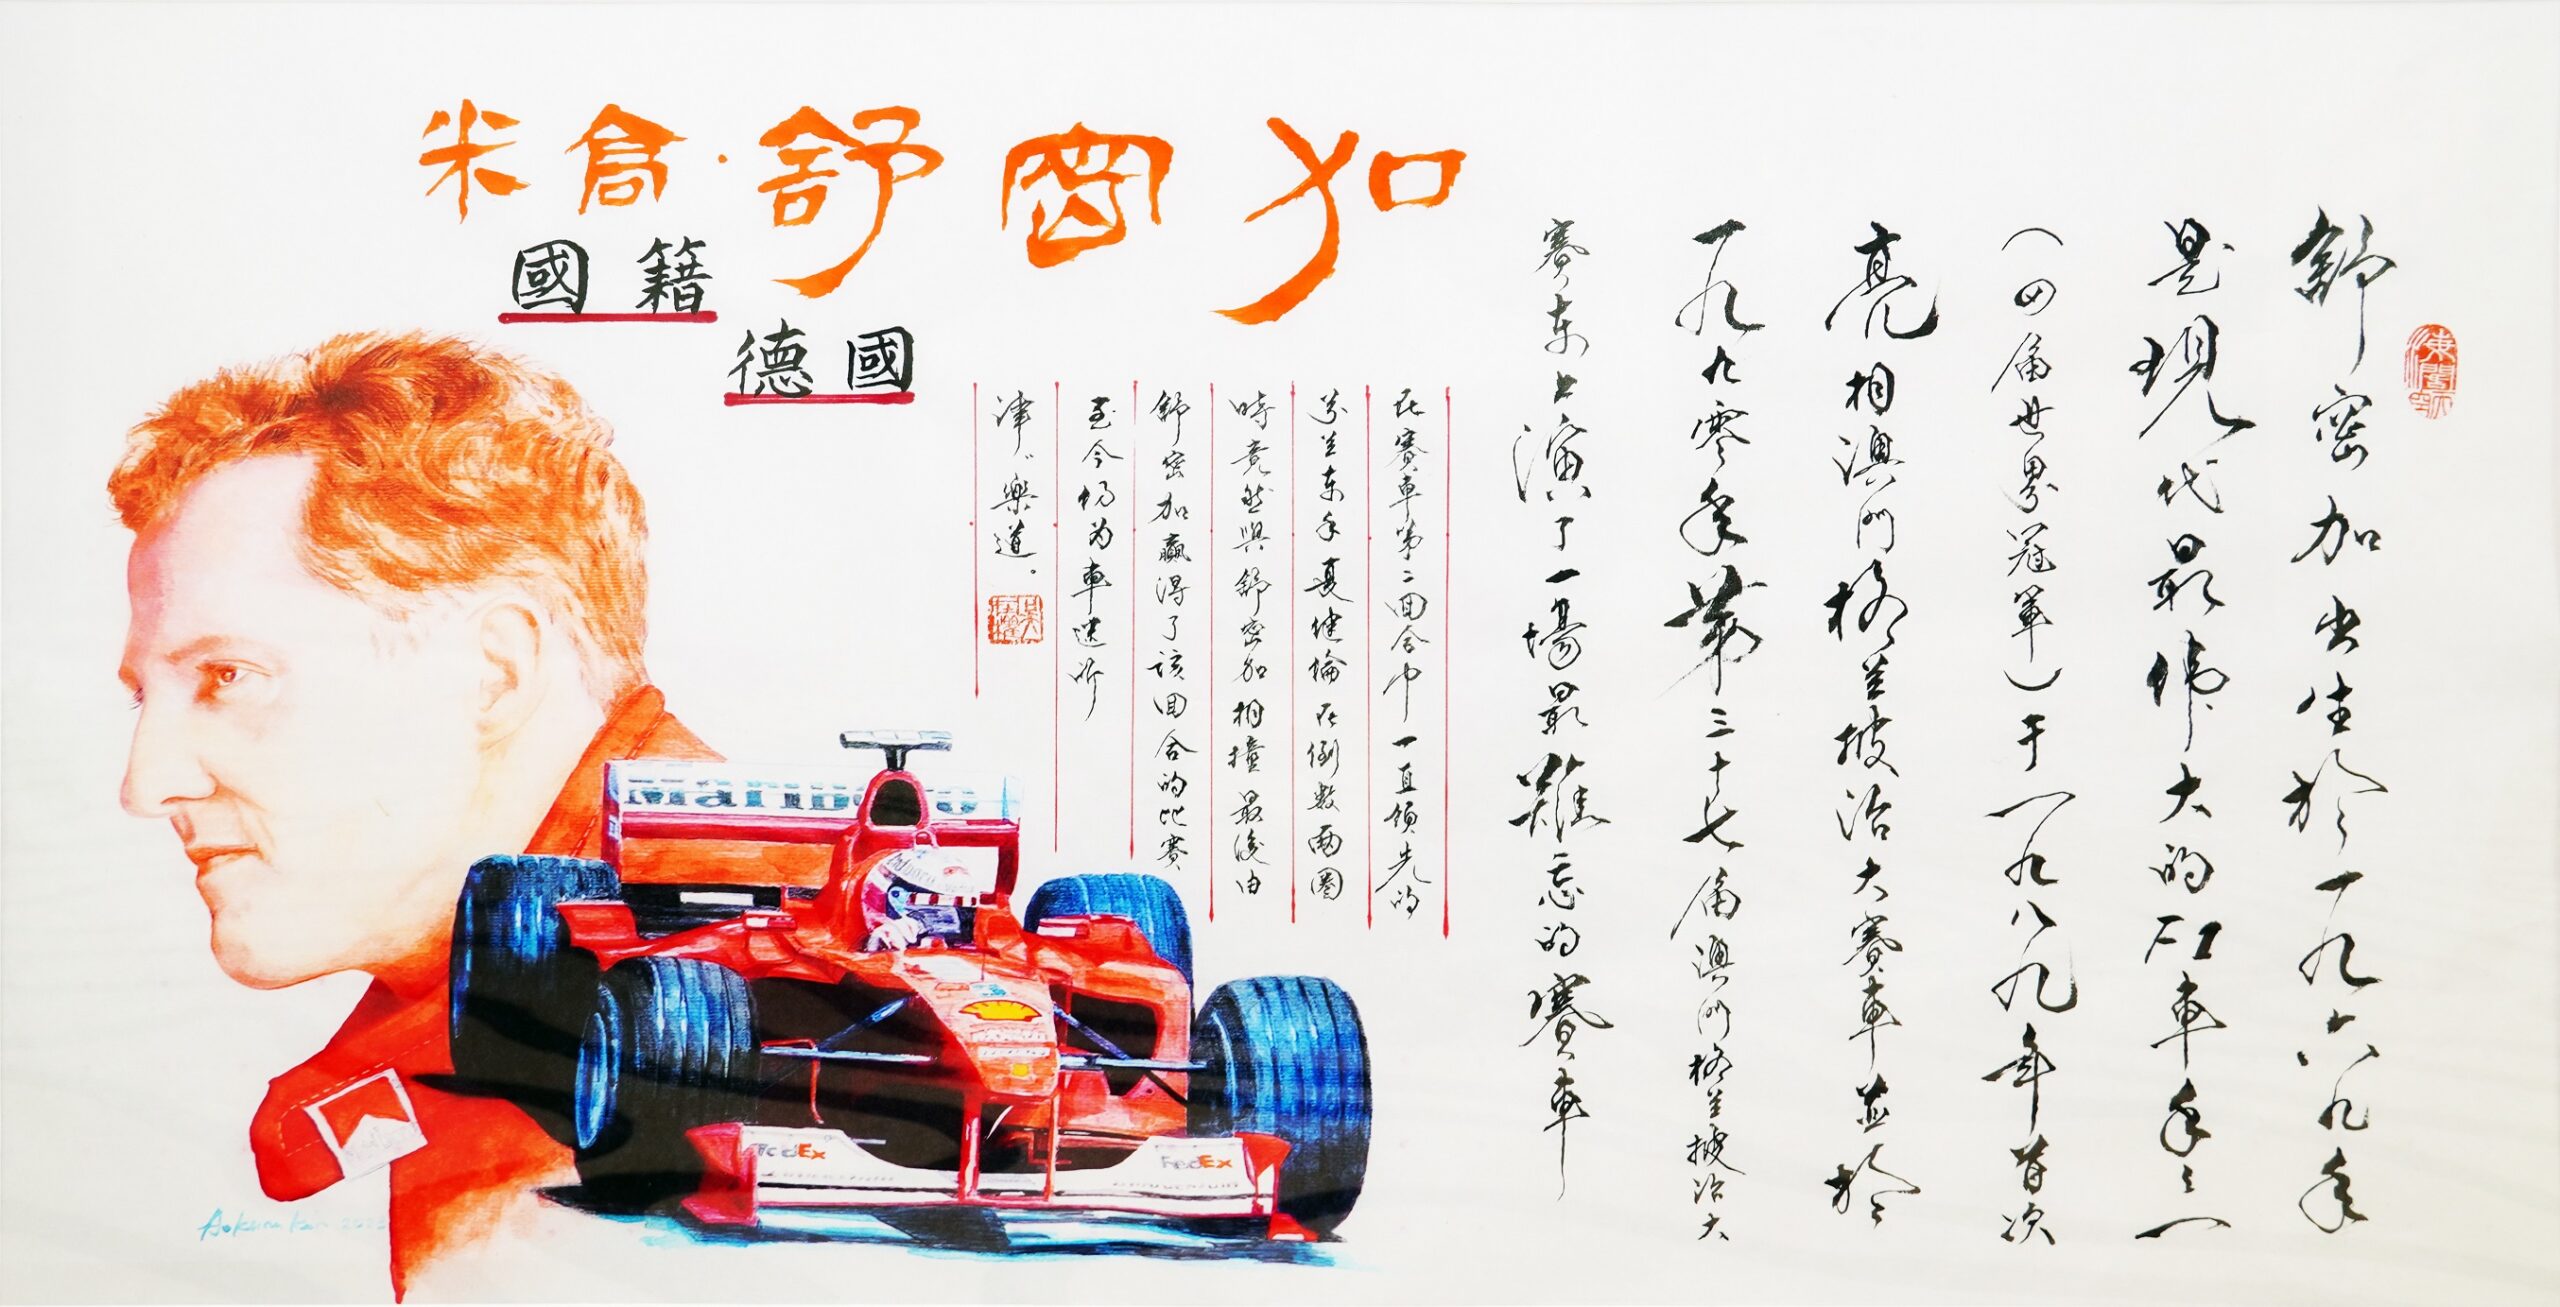 米高·舒密加
國籍
德國
舒密加出生於一九六九年
是現代最偉大的F1車手之一
(四屆世界冠軍)于一九八九年首次
亮相澳門格兰披治大賽車並於
一九九零年第三十七屆澳門格兰披治大
賽车上演了一場最難忘的賽車
在賽車第二回合中一直領先的
芬兰车手夏健倫在倒數兩圈
時竟然與舒密加相撞最後由
舒密加贏得了該回合的比賽
至今仍为車迷所
津〃樂道。
Marlboro
FedEx
FedEx